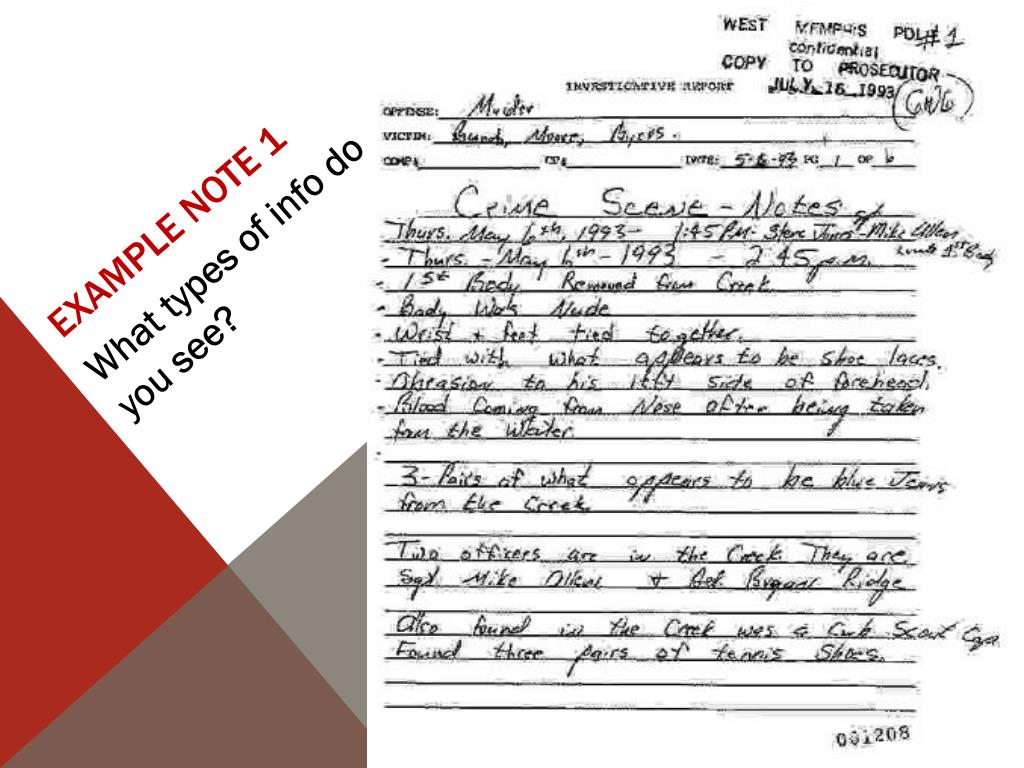 EXAMPLE NOTE 1
What types of info do
you see?
WEST MEMPHIS PD #1
confidential
COPY TO PROSECUTOR
JULY 16 1993
INVESTIGATIVE REPORT
OFFENSE: Murder
VICTIM: Branch, Moore, Byers.
DATE: 5-6-93 PG 1 OF 6
Crime Scene - Notes
Thurs. May 6th, 1993- 1:45 P.M- Steve Jones- Mike Allen
1st Body
- Thurs. - May 6th - 1993 - 2:45 p.m.
- 1st Body Removed from Creek
- Body Was Nude
- Wrist + feet tied together.
- Tied with what appears to be shoe laces.
- Abrasion to his left side of forehead.
- Blood Coming from Nose after being taken
from the Water.
3- Pairs of what appears to be blue Jeans
from the Creek.
Two officers are in the Creek They are.
Sgt Mike Allen + Det. Ridge
Also found in the Creek was a Cub Scout Cap.
Found three pairs of tennis Shoes.
001208